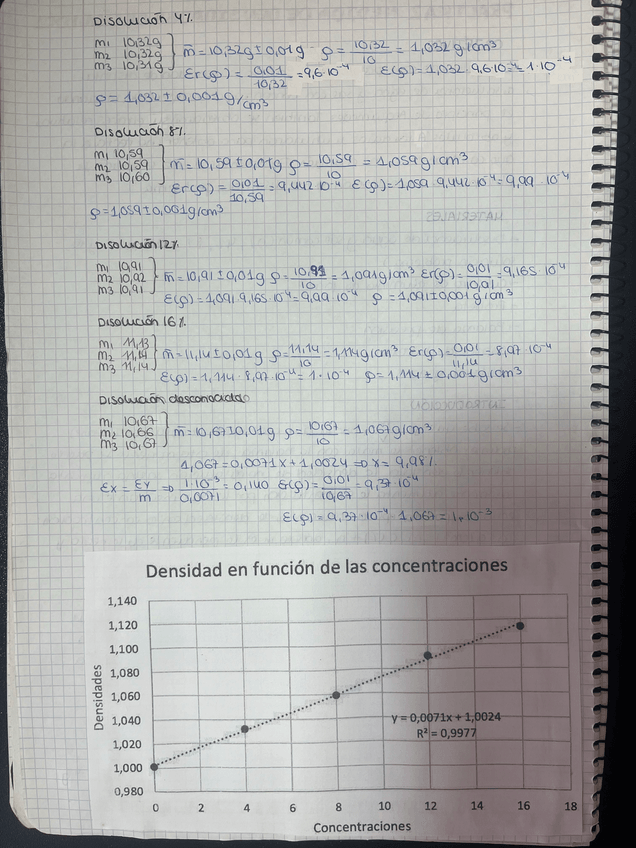 Disolución 4%
m₁ 10,32g
m₂ 10,32g
m₃ 10,31g
m̄ = 10,32g ± 0,01g ρ = 10,32/10 = 1,032 g/cm³
Er(ρ) = 0,01/10,32 = 9,6·10⁻⁴ E(ρ) = 1,032·9,6·10⁻⁴ = 1·10⁻⁴
ρ = 1,032 ± 0,001g/cm³
Disolución 8%
m₁ 10,59
m₂ 10,59
m₃ 10,60
m̄ = 10,59 ± 0,01g ρ = 10,59/10 = 1,059g/cm³
Er(ρ) = 0,01/10,59 = 9,442 10⁻⁴ E(ρ) = 1,059 9,442·10⁻⁴ = 9,99 10⁻⁴
ρ = 1,059 ± 0,001g/cm³
Disolución 12%
m₁ 10,91
m₂ 10,92
m₃ 10,91
m̄ = 10,91 ± 0,01 g ρ = 10,91/10 = 1,091g/cm³ Er(ρ) = 0,01/10,91 = 9,165 10⁻⁴
E(ρ) = 1,091 9,165·10⁻⁴ = 9,99 10⁻⁴ ρ = 1,091 ± 0,001g/cm³
Disolución 16%
m₁ 11,13
m₂ 11,14
m₃ 11,14
m̄ = 11,14 ± 0,01g ρ = 11,14/10 = 1,114g/cm³ Er(ρ) = 0,01/11,14 = 8,97 10⁻⁴
E(ρ) = 1,114·8,97·10⁻⁴ = 1·10⁻⁴ ρ = 1,114 ± 0,001g/cm³
Disolución desconocida
m₁ 10,67
m₂ 10,66
m₃ 10,67
m̄ = 10,67 ± 0,01g ρ = 10,67/10 = 1,067g/cm³
1,067 = 0,0071x + 1,0024 ⇒ x = 9,98%
Ex = Ey/m ⇒ 1·10⁻³/0,0071 = 0,140 Er(ρ) = 0,01/10,67 = 9,37·10⁻⁴
E(ρ) = 9,37·10⁻⁴·1,067 = 1·10⁻³
Densidad en función de las concentraciones
1,140
1,120
1,100
1,080
1,060
1,040
1,020
1,000
0,980
Densidades
y = 0,0071x + 1,0024
R² = 0,9977
0 2 4 6 8 10 12 14 16 18
Concentraciones